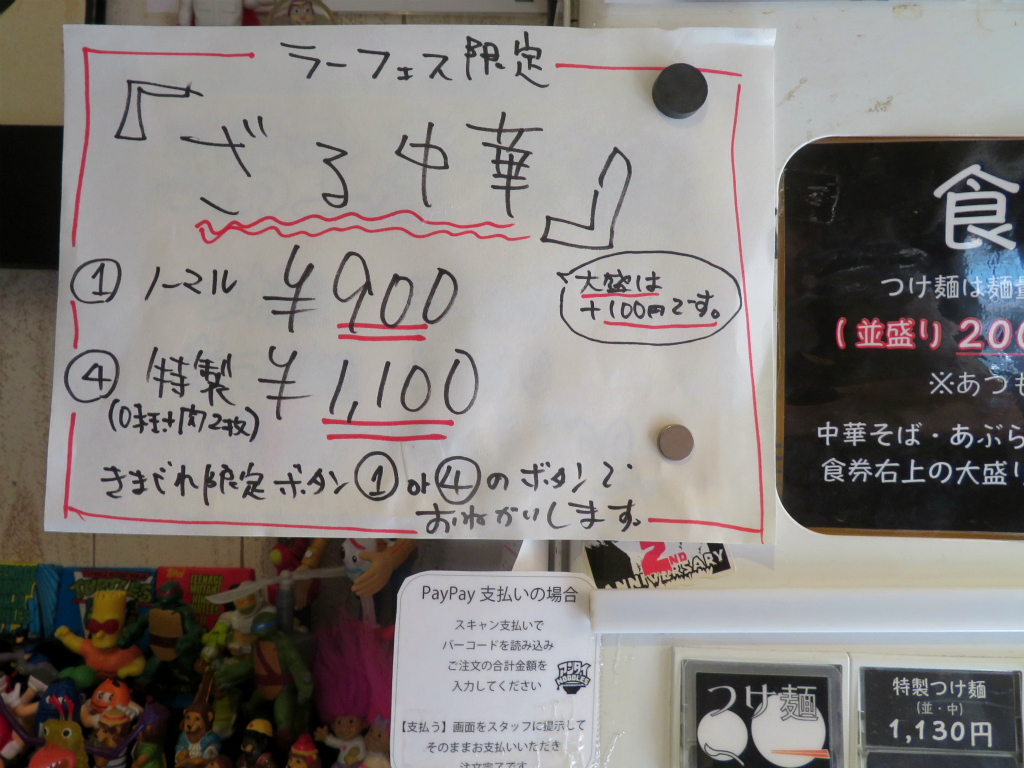 ラーフェス限定
『ざる中華』
① ノーマル ¥900
大盛は
+100円です。
④ 特製 ¥1,100
(ロース肉2枚)
きまぐれ限定ボタン①or④のボタンで
おねがいします。
食
つけ麺は麺
(並盛り 200
※あつも
中華そば・あぶら
食券右上の大盛り
2ND
ANNIVERSARY
TEENAGE
MUTANT
PayPay 支払いの場合
スキャン支払いで
バーコードを読み込み
ご注文の合計金額を
入力してください
NOODLES
【支払う】画面をスタッフに提示して
そのままお支払いいただき
注文完了です
つけ麺
特製つけ麺
(並・中)
1,130円